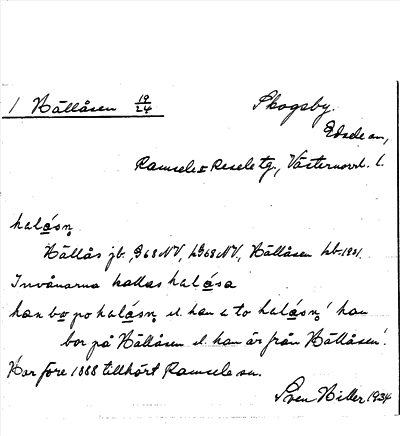 1 Hällåsen 19/24
Skogsby.
Edsele sn,
Ramsele o Resele tg., Västernorrl. l.
halåsn̥
Hällås jb. G68NV, hG68NV, Hällåsen kb. 1931.
Invånarna kallas halåsa
han bo po halåsn̥ el. han e to halåsn̥ ' han
bor på Hällåsen el. han är från Hällåsen'.
Har före 1888 tillhört Ramsele sn.
Sven Hiller 1934